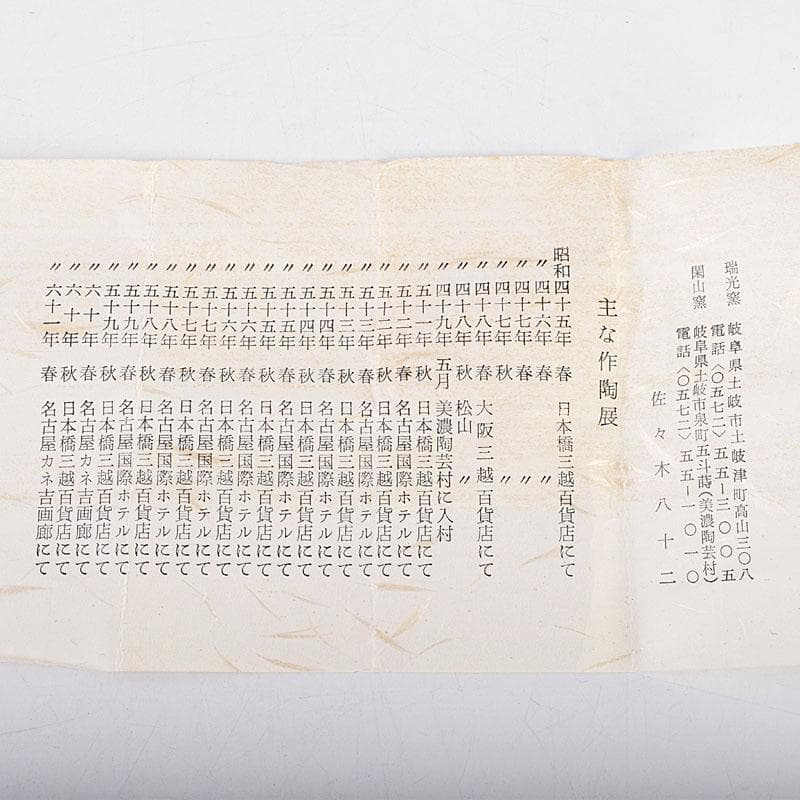 瑞光窯 岐阜県土岐市土岐津町高山三〇八
電話〈〇五七二〉五五―三〇〇五
閑山窯 岐阜県土岐市泉町五斗蒔(美濃陶芸村)
電話〈〇五七二〉五五―一〇一〇
佐々木八十二
主な作陶展
昭和四十五年 春 日本橋三越百貨店にて
〃 四十六年 春 〃
〃 四十七年 春 〃
〃 四十七年 秋 〃
〃 四十八年 春 大阪三越百貨店にて
〃 四十八年 秋 松山 〃
〃 四十九年 五月 美濃陶芸村に入村
〃 五十一年 秋 日本橋三越百貨店にて
〃 五十二年 春 名古屋国際ホテルにて
〃 五十二年 秋 日本橋三越百貨店にて
〃 五十三年 春 名古屋国際ホテルにて
〃 五十三年 秋 日本橋三越百貨店にて
〃 五十四年 春 名古屋国際ホテルにて
〃 五十四年 秋 日本橋三越百貨店にて
〃 五十五年 春 名古屋国際ホテルにて
〃 五十五年 秋 日本橋三越百貨店にて
〃 五十六年 春 名古屋国際ホテルにて
〃 五十六年 秋 日本橋三越百貨店にて
〃 五十七年 春 名古屋国際ホテルにて
〃 五十七年 秋 日本橋三越百貨店にて
〃 五十八年 春 名古屋国際ホテルにて
〃 五十八年 秋 日本橋三越百貨店にて
〃 五十九年 春 名古屋国際ホテルにて
〃 五十九年 秋 日本橋三越百貨店にて
〃 六十年 春 名古屋カネ吉画廊にて
〃 六十年 秋 日本橋三越百貨店にて
〃 六十一年 春 名古屋カネ吉画廊にて